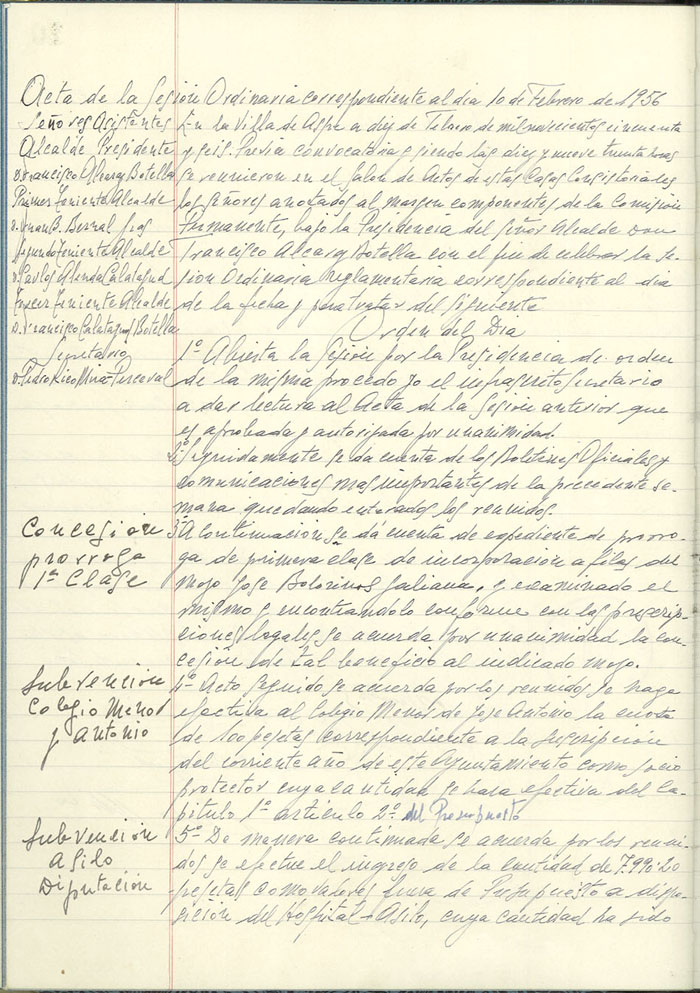 Acta de la Sesión Ordinaria correspondiente al dia 10 de Febrero de 1956
Señores Asistentes
Alcalde Presidente
D. Francisco Alcaraz Botella
Primer Teniente Alcalde
D. Juan B. Bernal
Segundo Teniente Alcalde
D. Carlos Alenda Calatayud
Tercer Teniente Alcalde
D. Francisco Calatayud Botella
Secretario
D. Pedro Rico Mira-Perceval
En la Villa de Aspe a diez de Febrero de mil novecientos cincuenta
y seis. Previa convocatoria y siendo las diez y nueve treinta horas
se reunieron en el Salon de Actos de estas Casas Consistoriales
los señores anotados al margen componentes de la Comision
Permanente, bajo la Presidencia del Señor Alcalde Don
Francisco Alcaraz Botella con el fin de celebrar la se-
sion Ordinaria reglamentaria correspondiente al dia
de la fecha y para tratar del siguiente
Orden del Dia
1º Abierta la Sesion por la Presidencia de orden
de la misma procedo yo el infrascrito Secretario
a dar lectura al Acta de la Sesion anterior que
es aprobada y autorizada por unanimidad.
2º Seguidamente se da cuenta de los Boletines Oficiales y
comunicaciones mas importantes de la precedente se-
mana quedando enterados los reunidos.
Concesión
prorroga
1ª Clase
3º A continuacion se dá cuenta de expediente de prorro-
ga de primera clase de incorporación a filas del
mozo Jose Bolorinos Galiana, y examinado el
mismo y encontrandolo conforme con las prescrip-
ciones legales se acuerda por unanimidad la con-
cesión de tal beneficio al indicado mozo.
Subvención
Colegio Menor
J Antonio
4º Acto seguido se acuerda por los reunidos se haga
efectiva al Colegio Menor de Jose Antonio la cuota
de 100 pesetas correspondiente a la suscripción
del corriente año de este Ayuntamiento como socio
protector cuya cantidad se hara efectiva del Ca-
pitulo 1º articulo 2º del Presupuesto
Subvención
Asilo
Diputación
5º De manera continuada se acuerda por los reuni-
dos se efectue el ingreso de la cantidad de 7.990.20
pesetas como valores fuera de Presupuesto a dispo-
sición del Hospital-Asilo, cuya cantidad ha sido